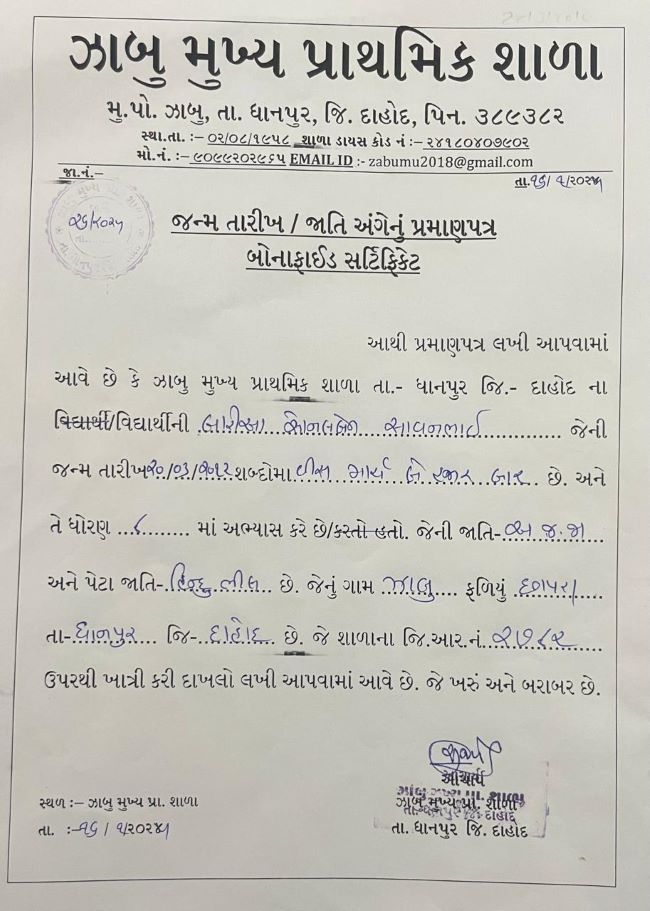 ઝાબુ મુખ્ય પ્રાથમિક શાળા
મુ.પો. ઝાબુ, તા. ધાનપુર, જિ. દાહોદ, પિન. ૩૮૯૩૮૨
સ્થા.તા. :– ૦૨/૦૮/૧૯૫૮ શાળા ડાયસ કોડ નં :–૨૪૧૮૦૪૦૭૯૦૨
મો.નં. :– ૯૦૯૯૨૦૨૯૬૫ EMAIL ID :- zabumu2018@gmail.com
જા.નં.–
તા.૧૬/ ૧/૨૦૨૫
જન્મ તારીખ / જાતિ અંગેનું પ્રમાણપત્ર
બોનાફાઈડ સર્ટિફિકેટ
આથી પ્રમાણપત્ર લખી આપવામાં
આવે છે કે ઝાબુ મુખ્ય પ્રાથમિક શાળા તા.- ધાનપુર જિ.- દાહોદ ના
વિદ્યાર્થી/વિદ્યાર્થીની બારીઆ સોનલબેન સાવનભાઈ જેની
જન્મ તારીખ ૨૦/૦૩/૨૦૧૨ શબ્દોમા વીસ માર્ચ બે હજાર બાર છે. અને
તે ધોરણ ૮ માં અભ્યાસ કરે છે/કરતો હતો. જેની જાતિ- અ.જ.જા
અને પેટા જાતિ- હિન્દુ ભીલ છે. જેનું ગામ ઝાબુ ફળિયું છાપરા
તા- ધાનપુર જિ- દાહોદ છે. જે શાળાના જિ.આર.નં ૨૭૮૨
ઉપરથી ખાત્રી કરી દાખલો લખી આપવામાં આવે છે. જે ખરું અને બરાબર છે.
આચાર્ય
સ્થળ :– ઝાબુ મુખ્ય પ્રા. શાળા
ઝાબુ મુખ્ય પ્રા. શાળા
તા. :–૧૬ / ૧/૨૦૨૫
તા. ધાનપુર જિ. દાહોદ